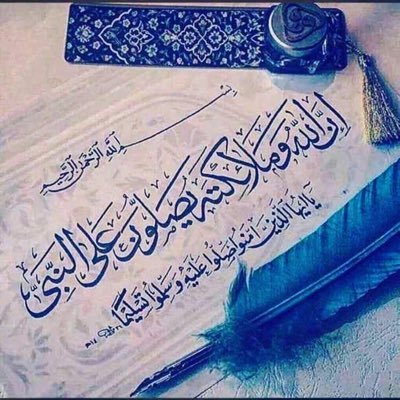 بسم الله الرحمن الرحيم
ان الله وملائكته يصلون على النبى
ياايها الذين آمنوا صلوا عليه وسلموا تسليما